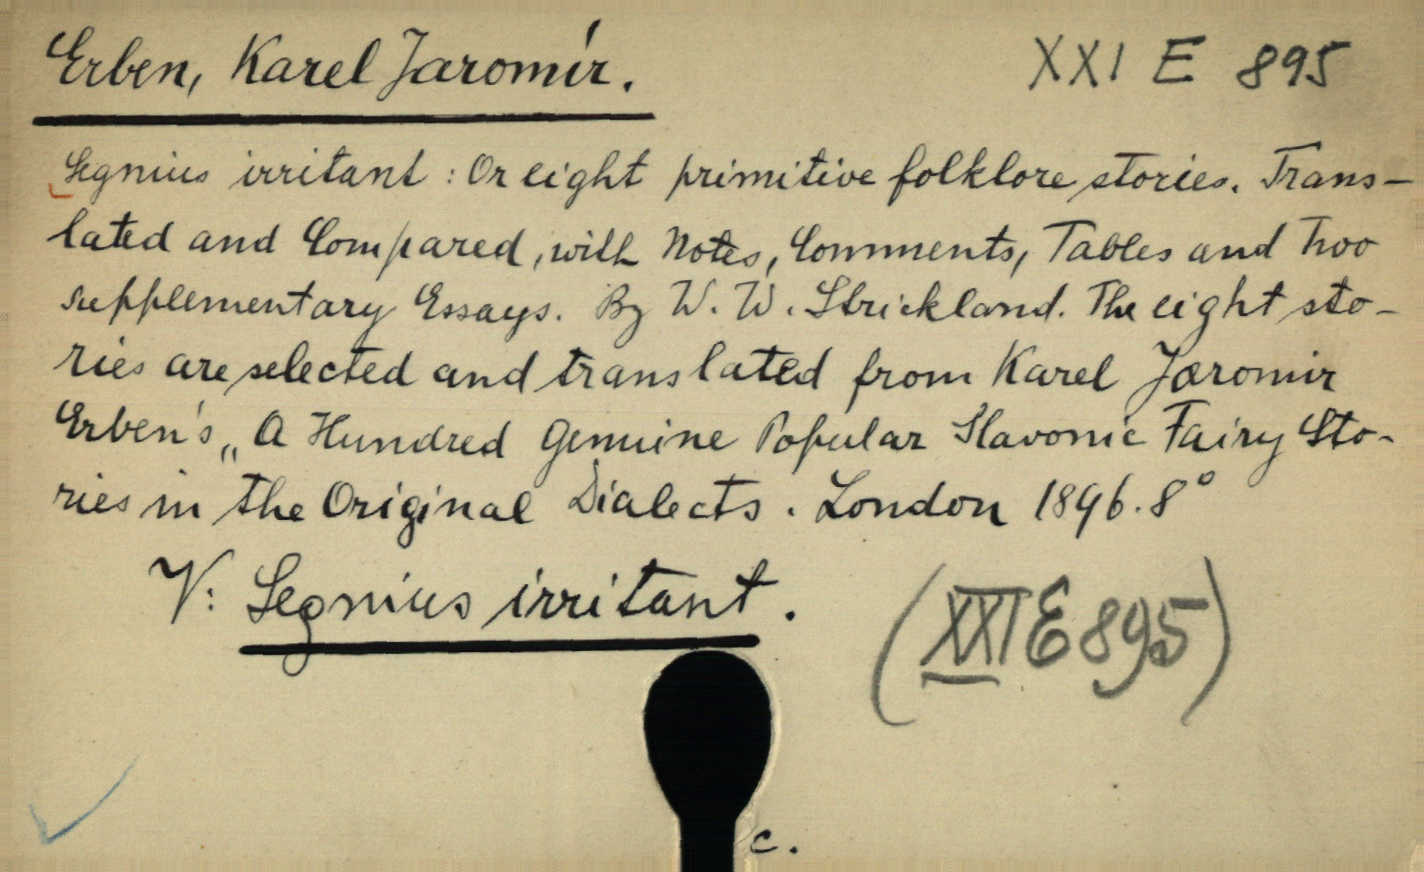 Erben, Karel Jaromír.
XXI E 895
Segnius irritant : Or eight primitive folklore stories. Trans-
lated and Compared, with Notes, Comments, Tables and Two
supplementary Essays. By W. W. Strickland. The eight sto-
ries are selected and translated from Karel Jaromir
Erben's „A Hundred Genuine Popular Slavonic Fairy Sto-
ries in the Original Dialects. London 1896. 8°
V: Segnius irritant.
(XXI E 895)
c.